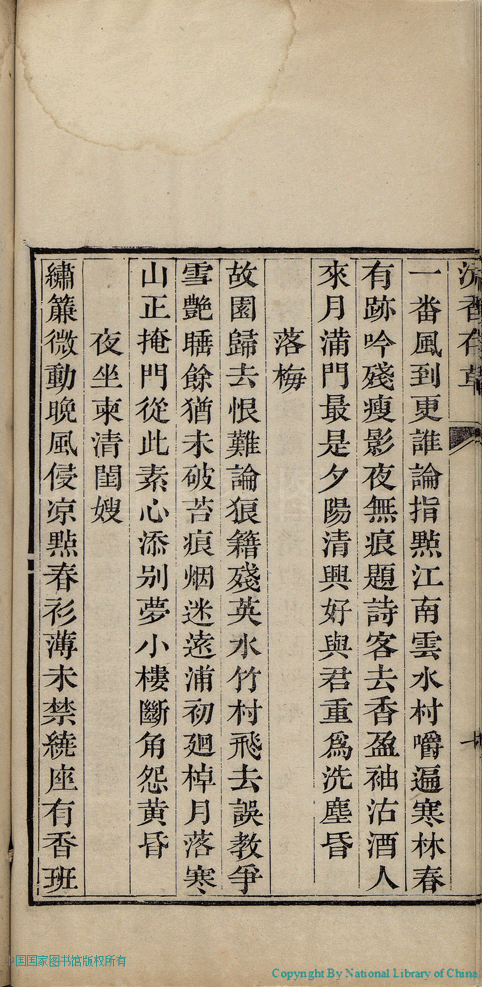 一番風到更誰論指㸃江南雲水村嚼遍寒林春
有跡吟殘瘦影夜無痕題詩客去香盈袖沽酒人
來月滿門最是夕陽清興好與君重爲洗塵昏
落梅
故園歸去恨難論狼籍殘英水竹村飛去誤教爭
雪艷睡餘猶未破苔痕烟迷遠浦初廻棹月落寒
山正掩門從此素心添别夢小樓斷角怨黄昏
夜坐柬清閨嫂
繡簾微動晚風侵凉㸃春衫薄未禁繞座有香班
中国国家图书馆版权所有
Copyright By National Library of China